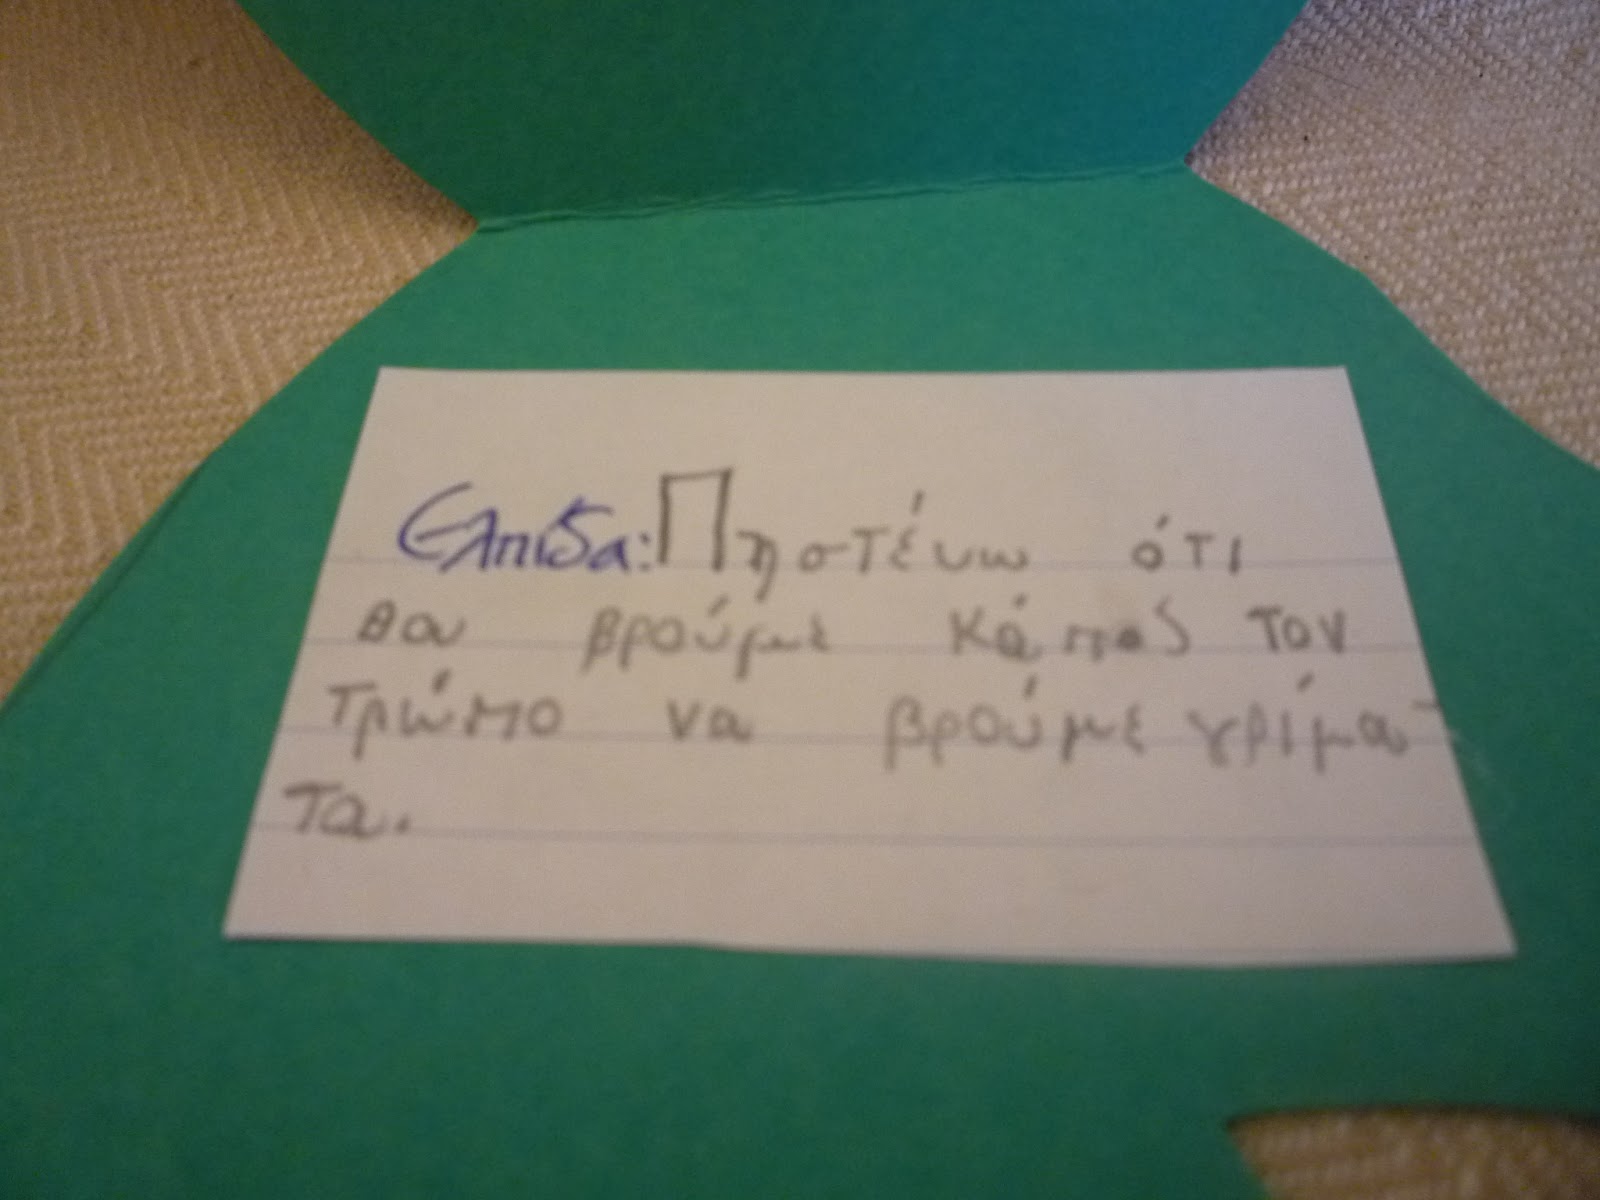 Ελπιδα: Πηστέυω ότι
θα βρούμε κάπος τον
τρώπο να βρούμε γρίμα-
τα.